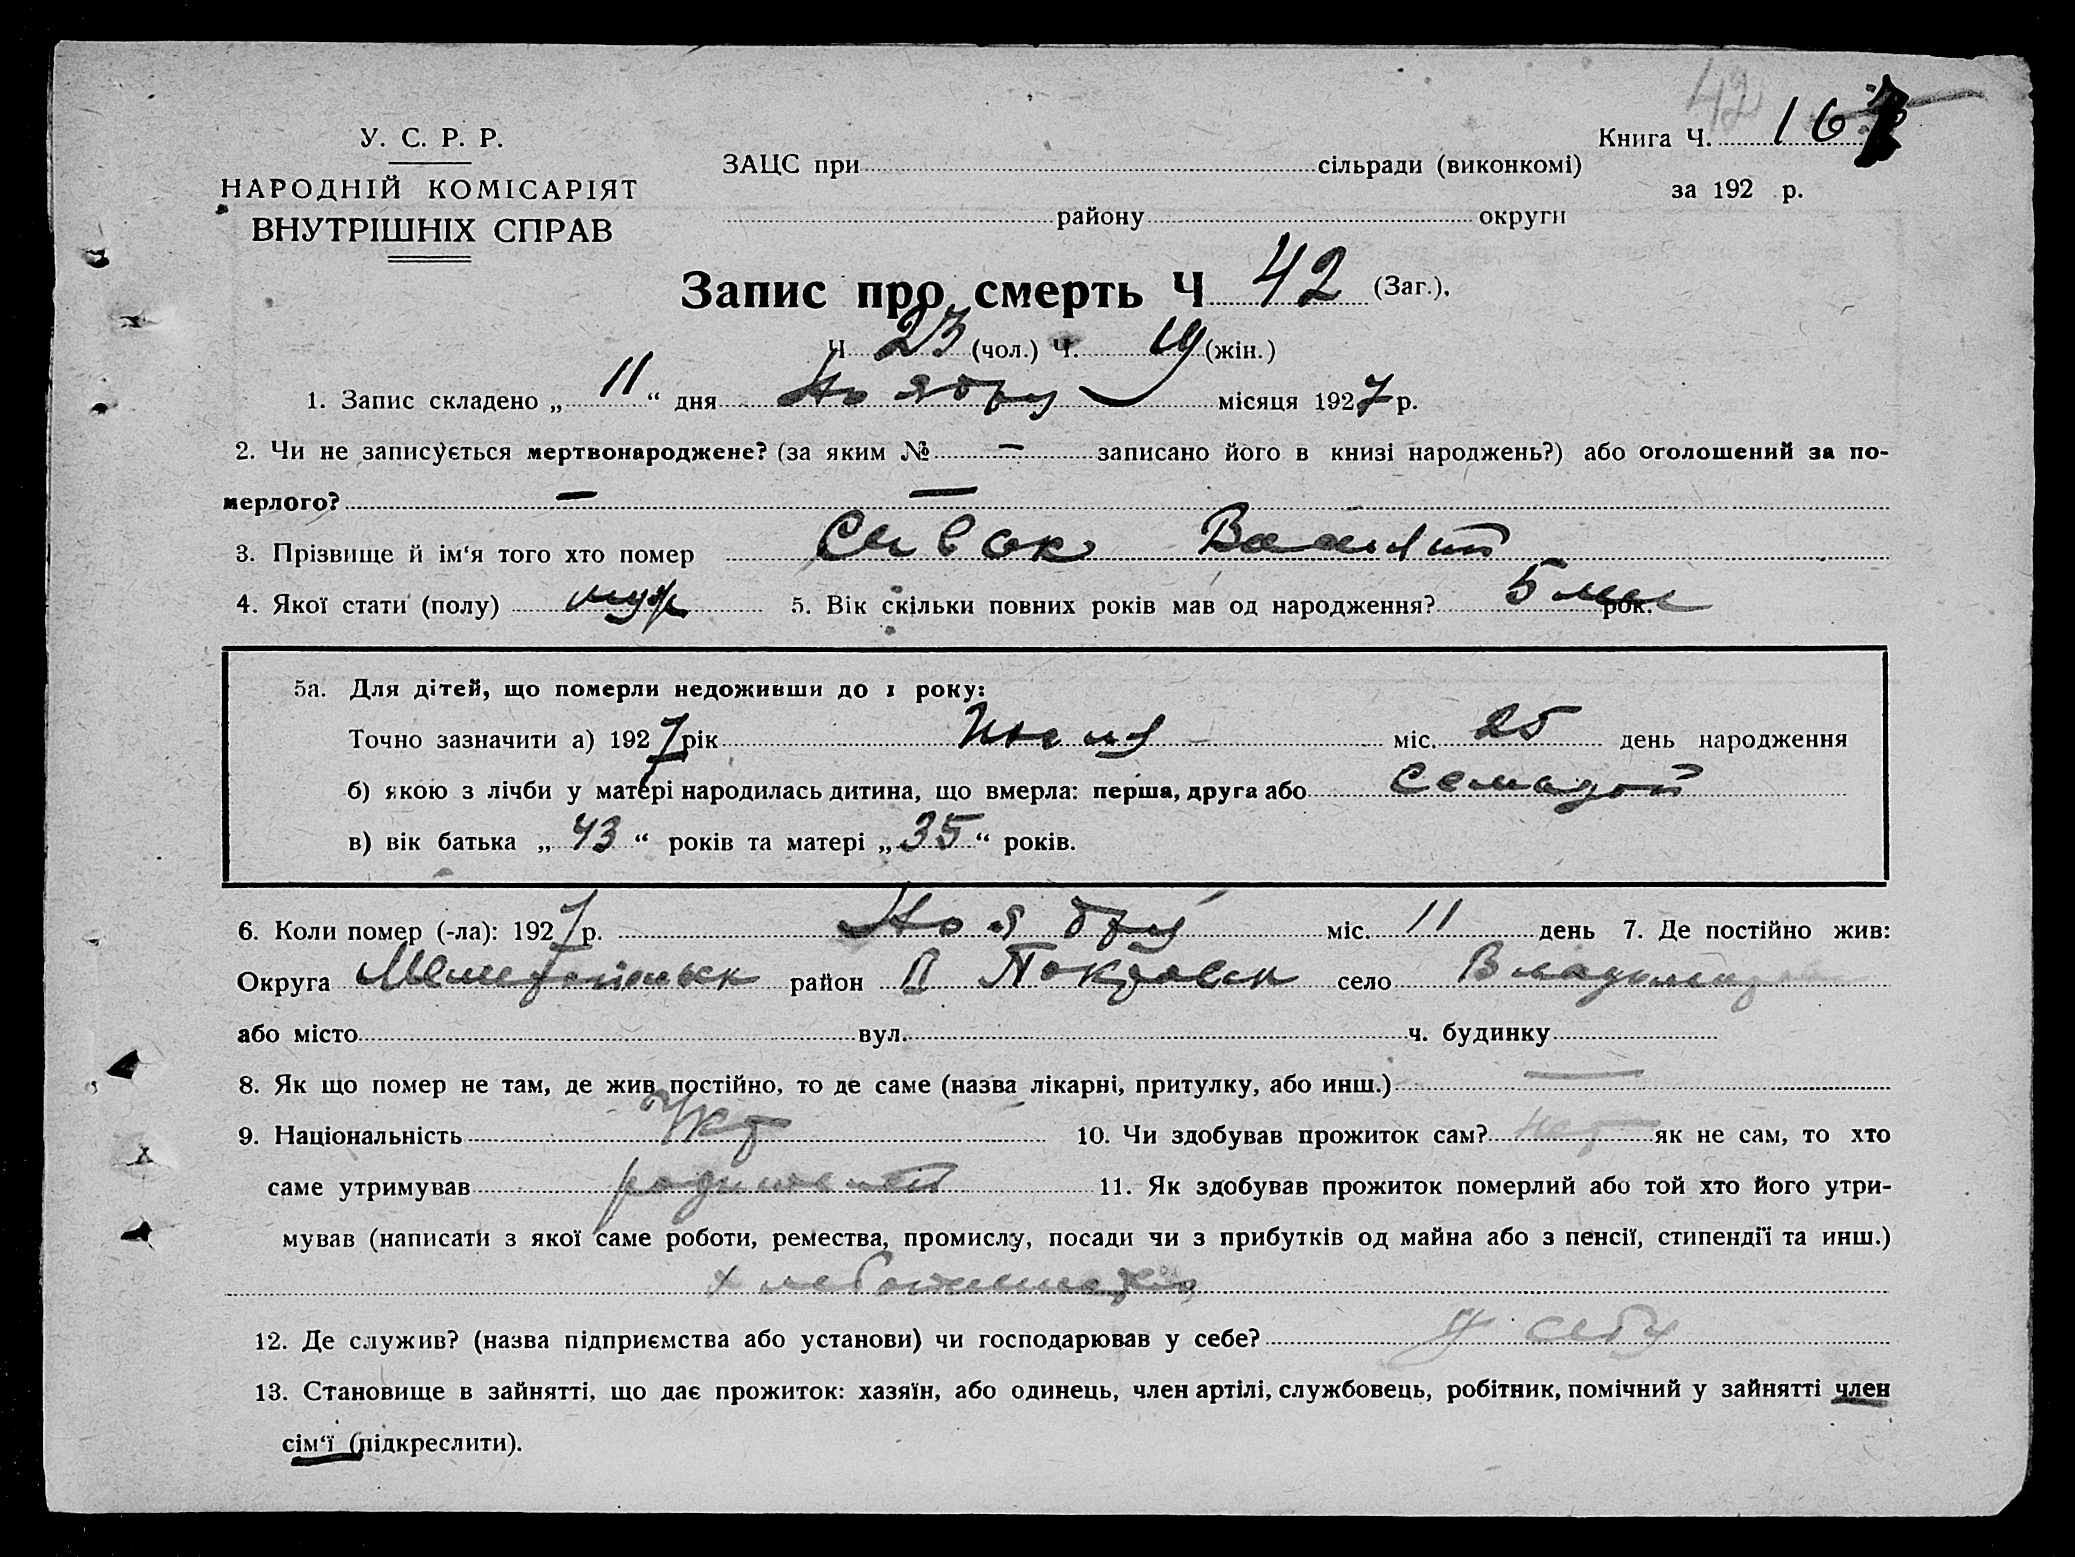 42
У. С. Р. Р.
НАРОДНІЙ КОМІСАРІЯТ
ВНУТРІШНІХ СПРАВ
ЗАЦС при сільради (виконкомі)
району округи
Книга Ч. 16
за 192 р.
Запис про смерть Ч 42 (Заг.),
Ч 23 (чол.) Ч. 19 (жін.)
1. Запис складено „ 11 “ дня Ноября місяця 1927 р.
2. Чи не записується мертвонароджене? (за яким № — записано його в книзі народжень?) або оголошений за по-
мерлого? — —
3. Прізвище й ім‘я того хто помер Сивок Василий
4. Якої стати (полу) муж 5. Вік скільки повних років мав од народження? 5 мес рок.
5а. Для дітей, що померли недоживши до 1 року:
Точно зазначити а) 1927 рік Июня міс. 25 день народження
б) якою з лічби у матері народилась дитина, що вмерла: перша, друга або
в) вік батька „ 43 “ років та матері „ 35 “ років.
6. Коли помер (-ла): 1927 р. Ноября міс. 11 день 7. Де постійно жив:
Округа Мелитопольск район В Покровск село
або місто вул. ч. будинку
8. Як що помер не там, де жив постійно, то де саме (назва лікарні, притулку, або инш.) —
9. Національність Укр 10. Чи здобував прожиток сам? нет як не сам, то хто
саме утримував родителей 11. Як здобував прожиток померлий або той хто його утри-
мував (написати з якої саме роботи, ремества, промислу, посади чи з прибутків од майна або з пенсії, стипендії та инш.)
12. Де служив? (назва підприємства або установи) чи господарював у себе? У себя
13. Становище в зайнятті, що дає прожиток: хазяїн, або одинець, член артілі, службовець, робітник, помічний у зайнятті член
сім‘ї (підкреслити).